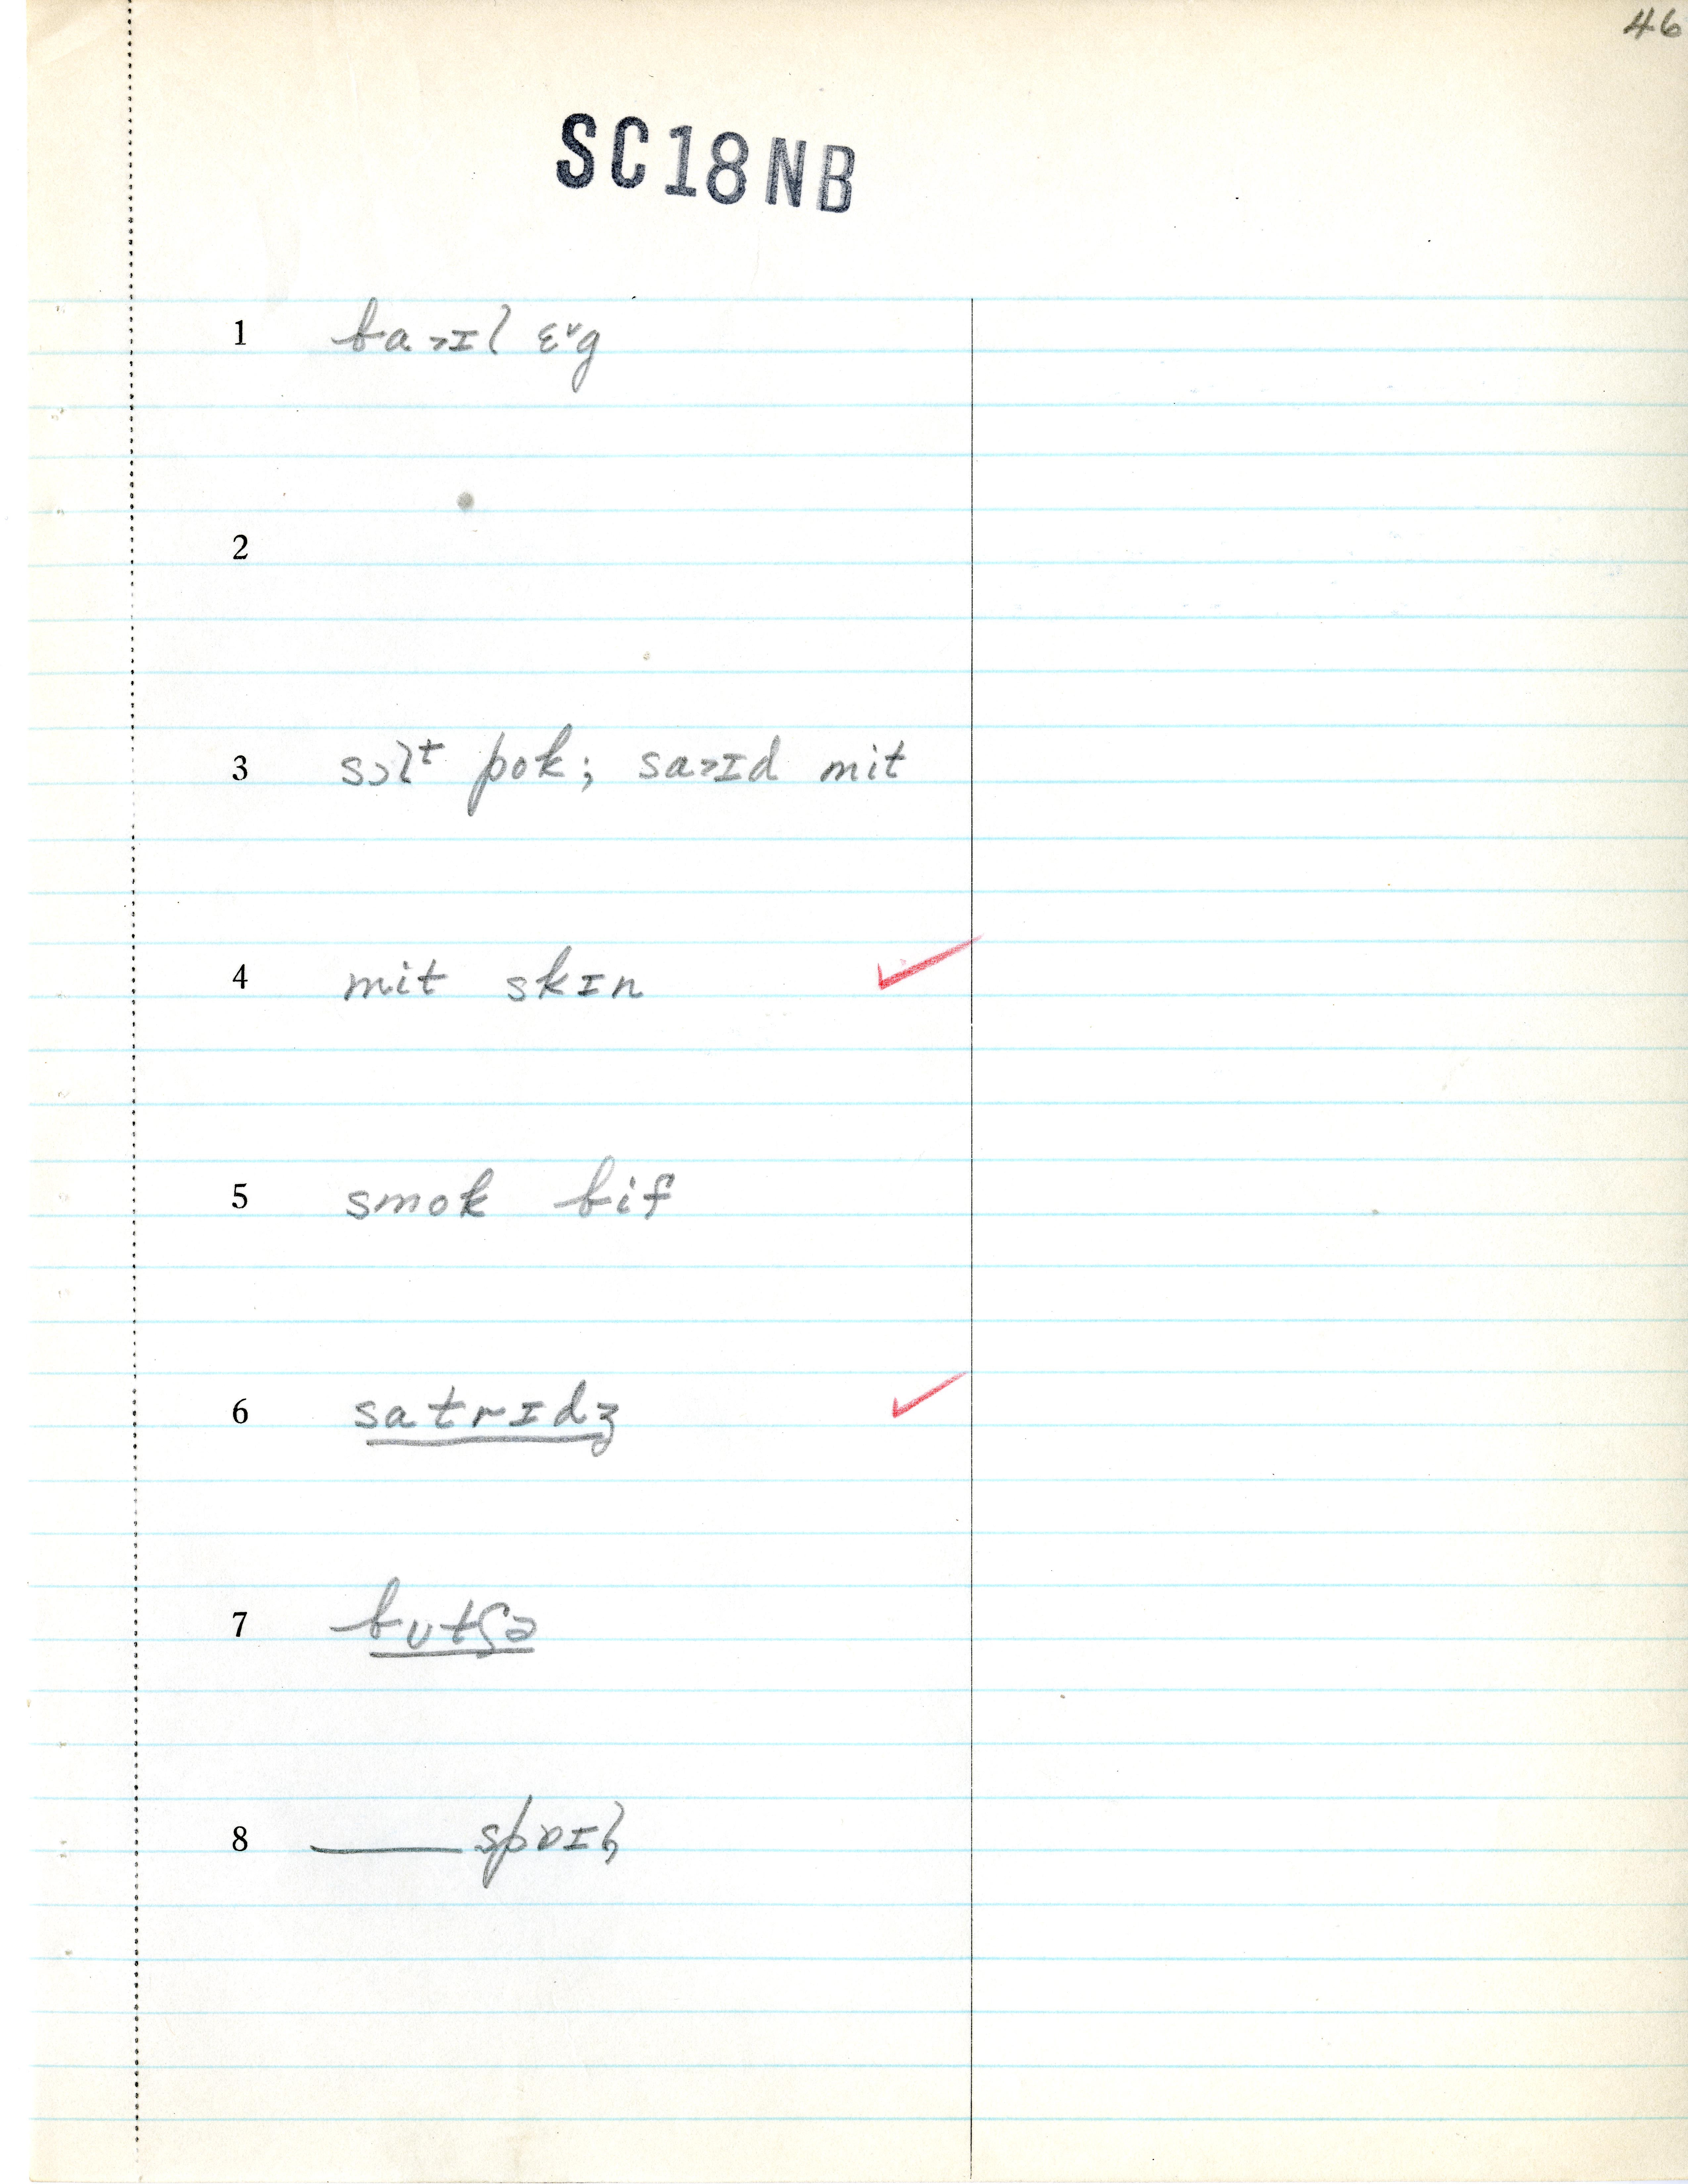 46
SC18NB
1 baɪl ɛᵛg
2
3 sɔlᵗ pok; saɪd mit
4 mit skɪn
5 smok bif
6 satrɪdʒ
7 bʊtʃə
8 ——— spɒɪl